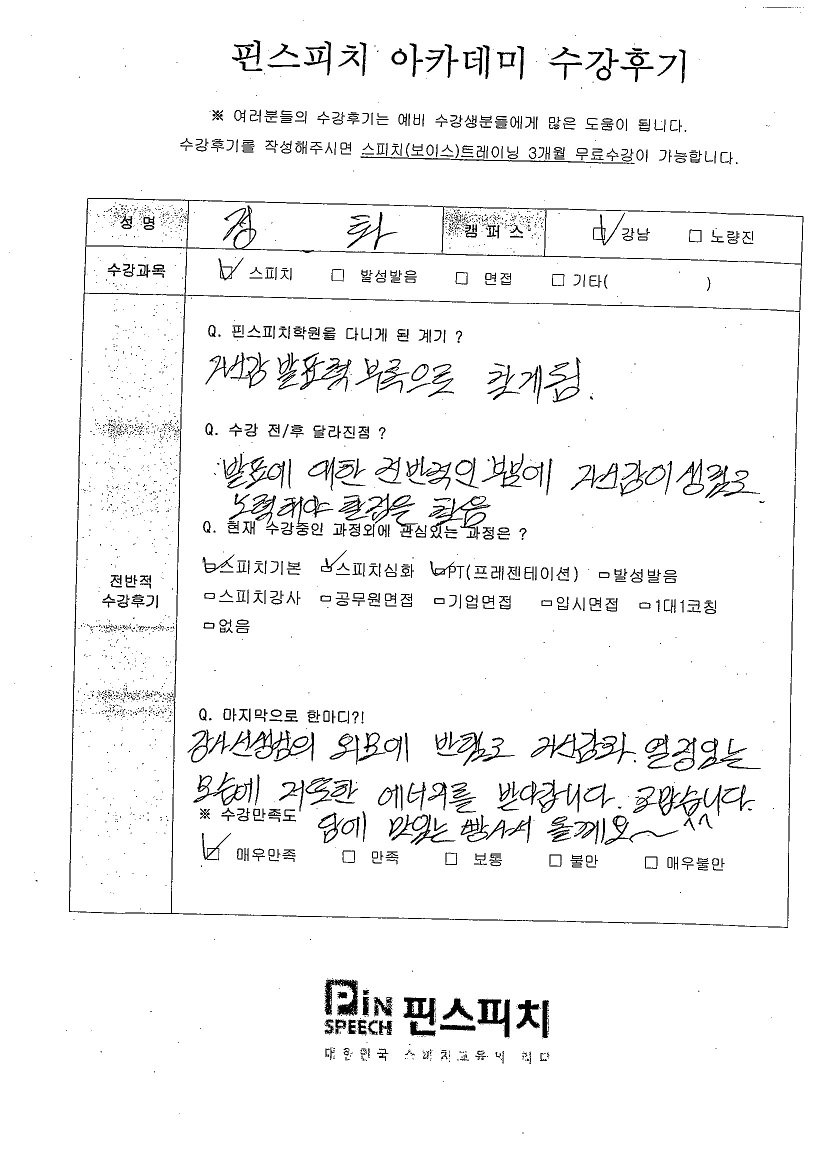 핀스피치 아카데미 수강후기
※ 여러분들의 수강후기는 예비 수강생분들에게 많은 도움이 됩니다.
수강후기를 작성해주시면 스피치(보이스)트레이닝 3개월 무료수강이 가능합니다.
성 명 정 화 캠 퍼 스 ☑ 강남 □ 노량진
수강과목 ☑ 스피치 □ 발성발음 □ 면접 □ 기타( )
Q. 핀스피치학원을 다니게 된 계기 ?
자신감 발표력 부족으로 찾게됨.
Q. 수강 전/후 달라진점 ?
발표에 대한 전반적인 부분에 자신감이 생김고
노력해야 할점을 찾음
Q. 현재 수강중인 과정외에 관심있는 과정은 ?
☑스피치기본 ☑스피치심화 ☑PT(프레젠테이션) □발성발음
전반적
수강후기
□스피치강사 □공무원면접 □기업면접 □입시면접 □1대1코칭
□없음
Q. 마지막으로 한마디?!
강사선생님의 외모에 반하고 자신감과 열정있는
모습에 저또한 에너지를 받아갑니다. 고맙습니다.
담에 맛있는 빵사서 올께요~ ^^
※ 수강만족도
☑ 매우만족 □ 만족 □ 보통 □ 불만 □ 매우불만
PiN SPEECH 핀스피치
대한민국 스피치교육의 리더